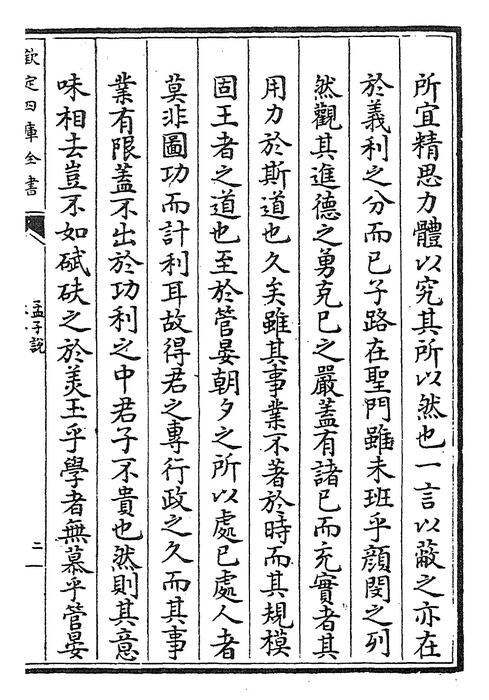 所宜精思力體以究其所以然也一言以蔽之亦在
於義利之分而已子路在聖門雖未班乎顔閔之列
然觀其進德之勇克已之嚴蓋有諸已而充實者其
用力於斯道也久矣雖其事業不著於時而其規模
固王者之道也至於管晏朝夕之所以處已處人者
莫非圖功而計利耳故得君之專行政之久而其事
業有限蓋不出於功利之中君子不貴也然則其意
味相去豈不如碔砆之於美玉乎學者無慕乎管晏
欽定四庫全書
孟子説
二